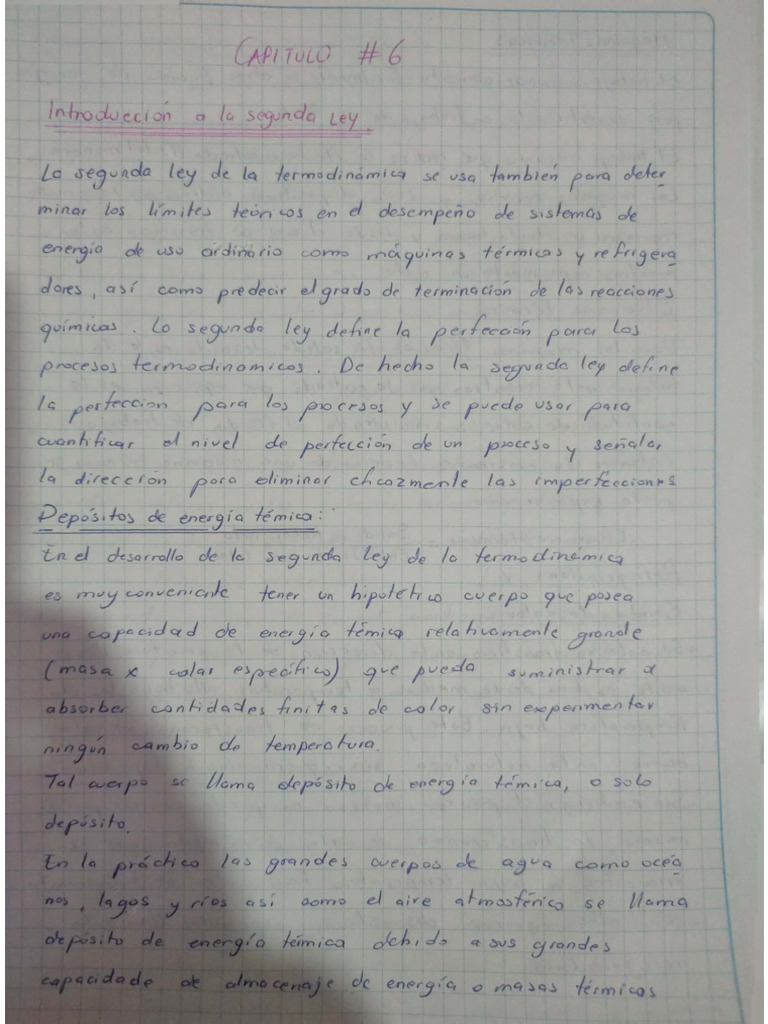 CAPITULO #6
Introducción a la segunda Ley.
La segunda ley de la termodinámica se usa también para deter
minar los límites teóricos en el desempeño de sistemas de
energía de uso ordinario como máquinas térmicas y refrigera
dores, así como predecir el grado de terminación de las reacciones
químicas. La segunda ley define la perfección para los
procesos termodinamicos. De hecho la segunda ley define
la perfección para los procesos y se puede usar para
cuantificar el nivel de perfección de un proceso y señalar
la dirección para eliminar eficazmente las imperfecciones
Depósitos de energía témica:
En el desarrollo de la segunda ley de la termodinámica
es muy conveniente tener un hipotético cuerpo que posea
una capacidad de energía témica relativamente grande
(masa x calor específico) que pueda suministrar o
absorber cantidades finitas de calor sin experimentar
ningún cambio de temperatura.
Tal cuerpo se llama depósito de energía témica, o solo
depósito.
En la práctica las grandes cuerpos de agua como océa
nos, lagos y ríos así como el aire atmosférico se llama
depósito de energía témica debido a sus grandes
capacidade de almacenaje de energía o masas térmicas